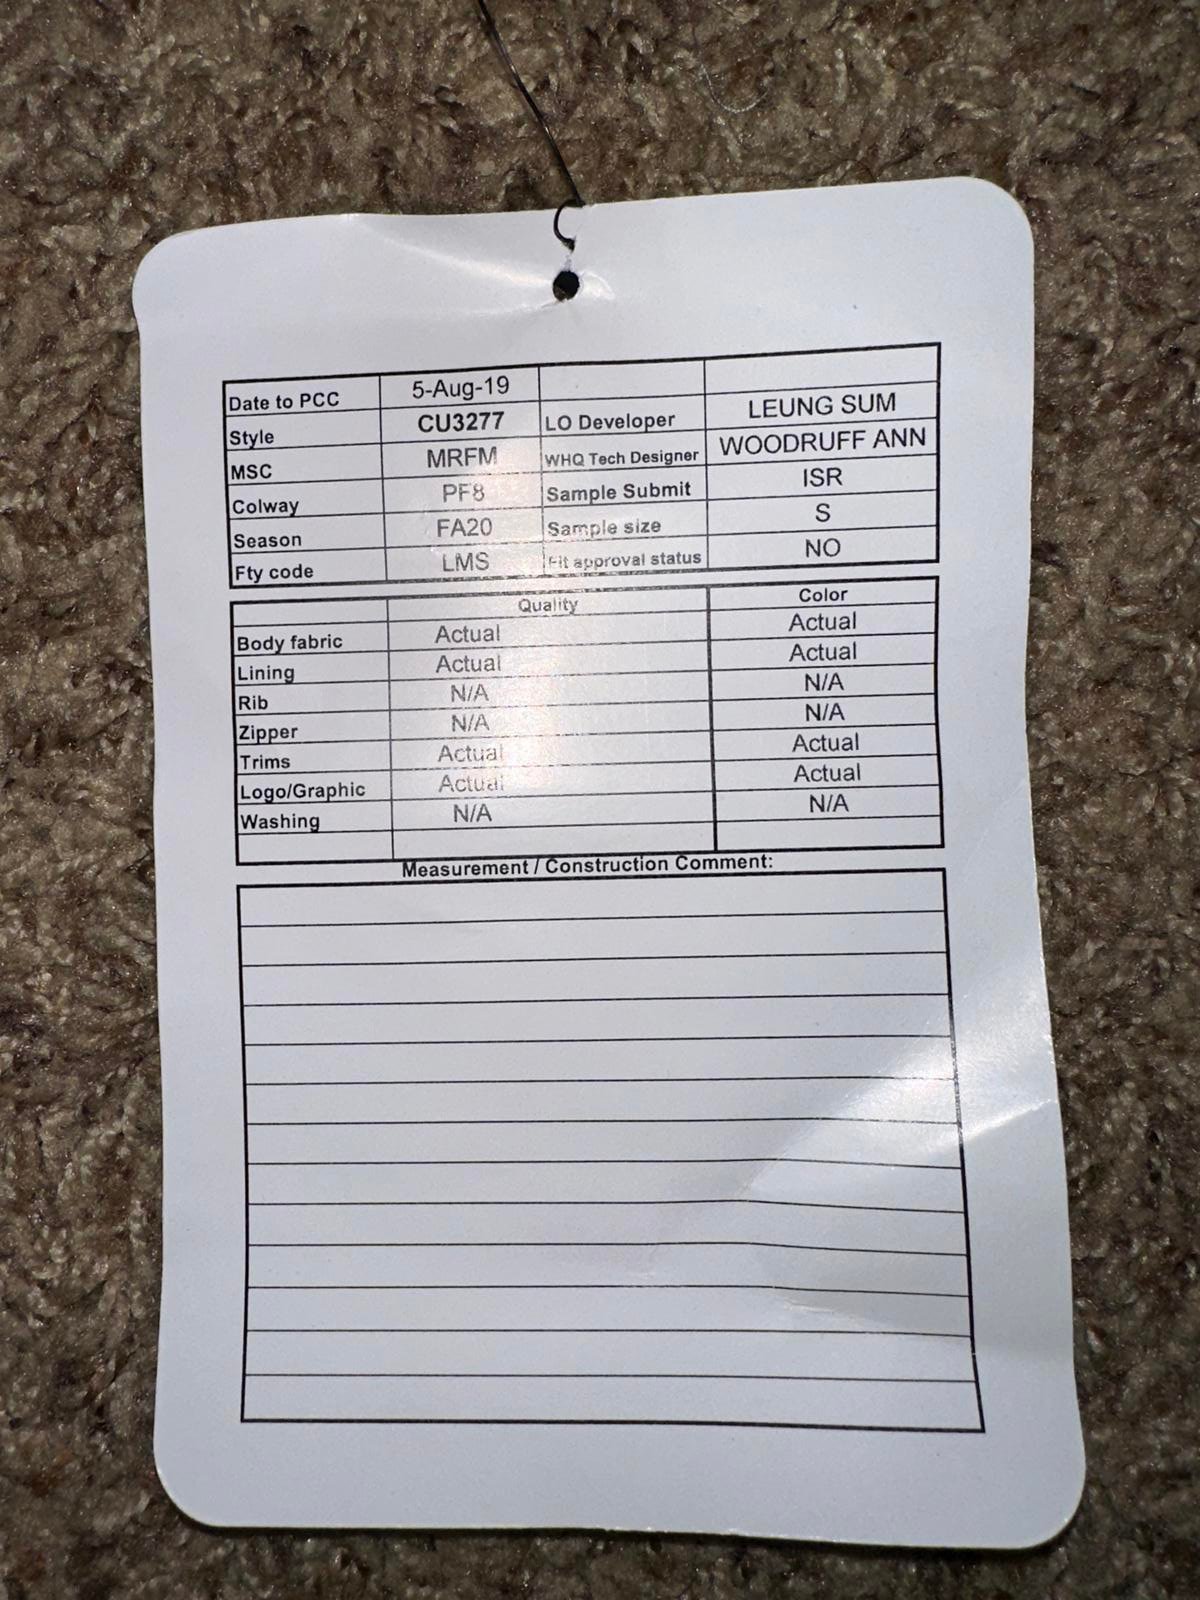 Date to PCC 5-Aug-19
Style CU3277 LO Developer LEUNG SUM
MSC MRFM WHQ Tech Designer WOODRUFF ANN
Colway PF8 Sample Submit ISR
Season FA20 Sample size S
Fty code LMS Fit approval status NO
Quality Color
Body fabric Actual Actual
Lining Actual Actual
Rib N/A N/A
Zipper N/A N/A
Trims Actual Actual
Logo/Graphic Actual Actual
Washing N/A N/A
Measurement / Construction Comment: